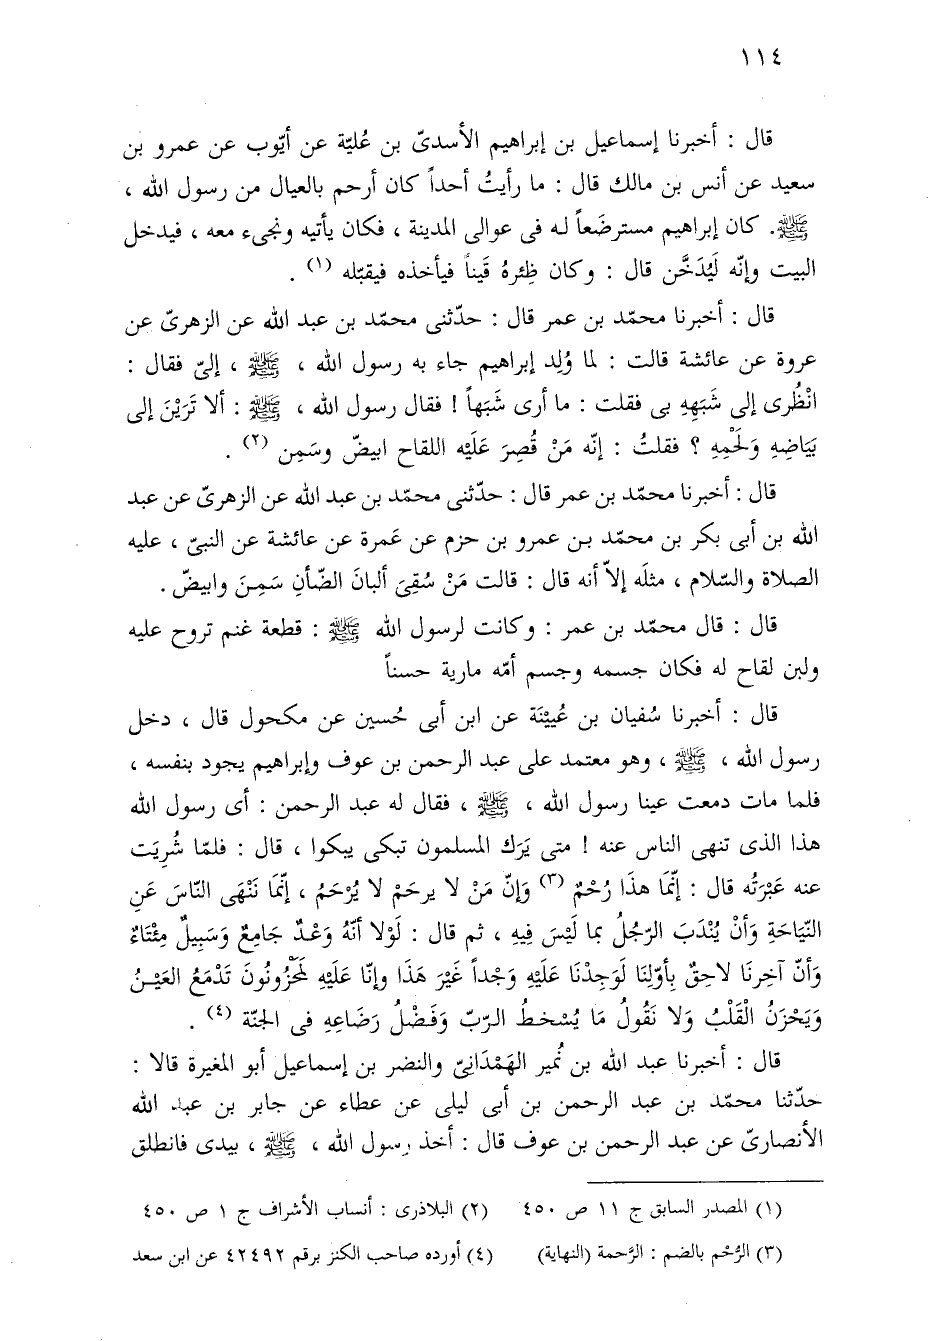 ١١٤
قال : أخبرنا إسماعيل بن إبراهيم الأسدىّ بن عُليّة عن أيّوب عن عمرو بن
سعيد عن أنس بن مالك قال : ما رأيتُ أحداً كان أرحم بالعيال من رسول الله ،
ﷺ. كان إبراهيم مسترضَعاً له فى عوالى المدينة ، فكان يأتيه ونجىء معه ، فيدخل
البيت وإنّه لَيُدَخَّن قال : وكان ظِئرهُ قَيناً فيأخذه فيقبّله (١) .
قال : أخبرنا محمّد بن عمر قال : حدّثنى محمّد بن عبد الله عن الزهرىّ عن
عروة عن عائشة قالت : لما وُلِد إبراهيم جاء به رسول الله ، ﷺ ، إلىّ فقال :
انْظُرى إلى شَبَهِهِ بى فقلت : ما أرى شَبَهاً ! فقال رسول الله ، ﷺ : ألا تَرَيْنَ إلى
بَيَاضِهِ وَلَحْمِهِ ؟ فقلتُ : إنّه مَنْ قُصِرَ عَلَيْه اللقاح ابيضّ وسَمِن (٢) .
قال : أخبرنا محمّد بن عمر قال : حدّثنى محمّد بن عبد الله عن الزهرىّ عن عبد
الله بن أبى بكر بن محمّد بن عمرو بن حزم عن عَمرة عن عائشة عن النبىّ ، عليه
الصلاة والسّلام ، مثلَه إلاّ أنه قال : قالت مَنْ سُقِىَ ألبانَ الضّأنِ سَمِنَ وابيضّ .
قال : قال محمّد بن عمر : وكانت لرسول الله ﷺ : قطعة غنم تروح عليه
ولبن لقاح له فكان جسمه وجسم أمّه مارية حسناً
قال : أخبرنا سُفيان بن عُيَيْنَة عن ابن أبى حُسين عن مكحول قال ، دخل
رسول الله ، ﷺ ، وهو معتمد على عبد الرحمن بن عوف وإبراهيم يجود بنفسه ،
فلما مات دمعت عينا رسول الله ، ﷺ ، فقال له عبد الرحمن : أى رسول الله
هذا الذى تنهى الناس عنه ! متى يَرَك المسلمون تبكى يبكوا ، قال : فلمّا شُرِيَت
عنه عَبْرَتُه قال : إنّمَا هذَا رُحْمٌ (٣) وَإنّ مَنْ لا يرحَمْ لا يُرْحَمُ ، إنّمَا نَنْهَى النّاسَ عَنِ
النّيَاحَةِ وَأنْ يُنْدَبَ الرّجُلُ بما لَيْسَ فِيهِ ، ثم قال : لَوْلا أنّهُ وَعْدٌ جَامِعٌ وَسَبِيلٌ مِئْتَاءٌ
وَأنّ آخِرنَا لاحِقٌ بِأوّلِنَا لَوَجِدْنَا عَلَيْهِ وَجْداً غَيْرَ هَذَا وإنّا عَلَيْهِ لَمَحْزُونُونَ تَدْمَعُ العَيْنُ
وَيَحْزَنُ الْقَلْبُ وَلا نَقُولُ مَا يُسْخطُ الرّبّ وَفَضْلُ رَضَاعِهِ فى الجنّة (٤) .
قال : أخبرنا عبد الله بن نُمير الهَمْدَانىّ والنضر بن إسماعيل أبو المغيرة قالا :
حدّثنا محمّد بن عبد الرحمن بن أبى ليلى عن عطاء عن جابر بن عبد الله
الأنصارىّ عن عبد الرحمن بن عوف قال : أخذ رسول الله ، ﷺ ، بيدى فانطلق
(١) المصدر السابق ج ١١ ص ٤٥٠ (٢) البلاذرى : أنساب الأشراف ج ١ ص ٤٥٠
(٣) الرُّحْم بالضم : الرَّحمة (النهاية) (٤) أورده صاحب الكنز برقم ٤٢٤٩٢ عن ابن سعد